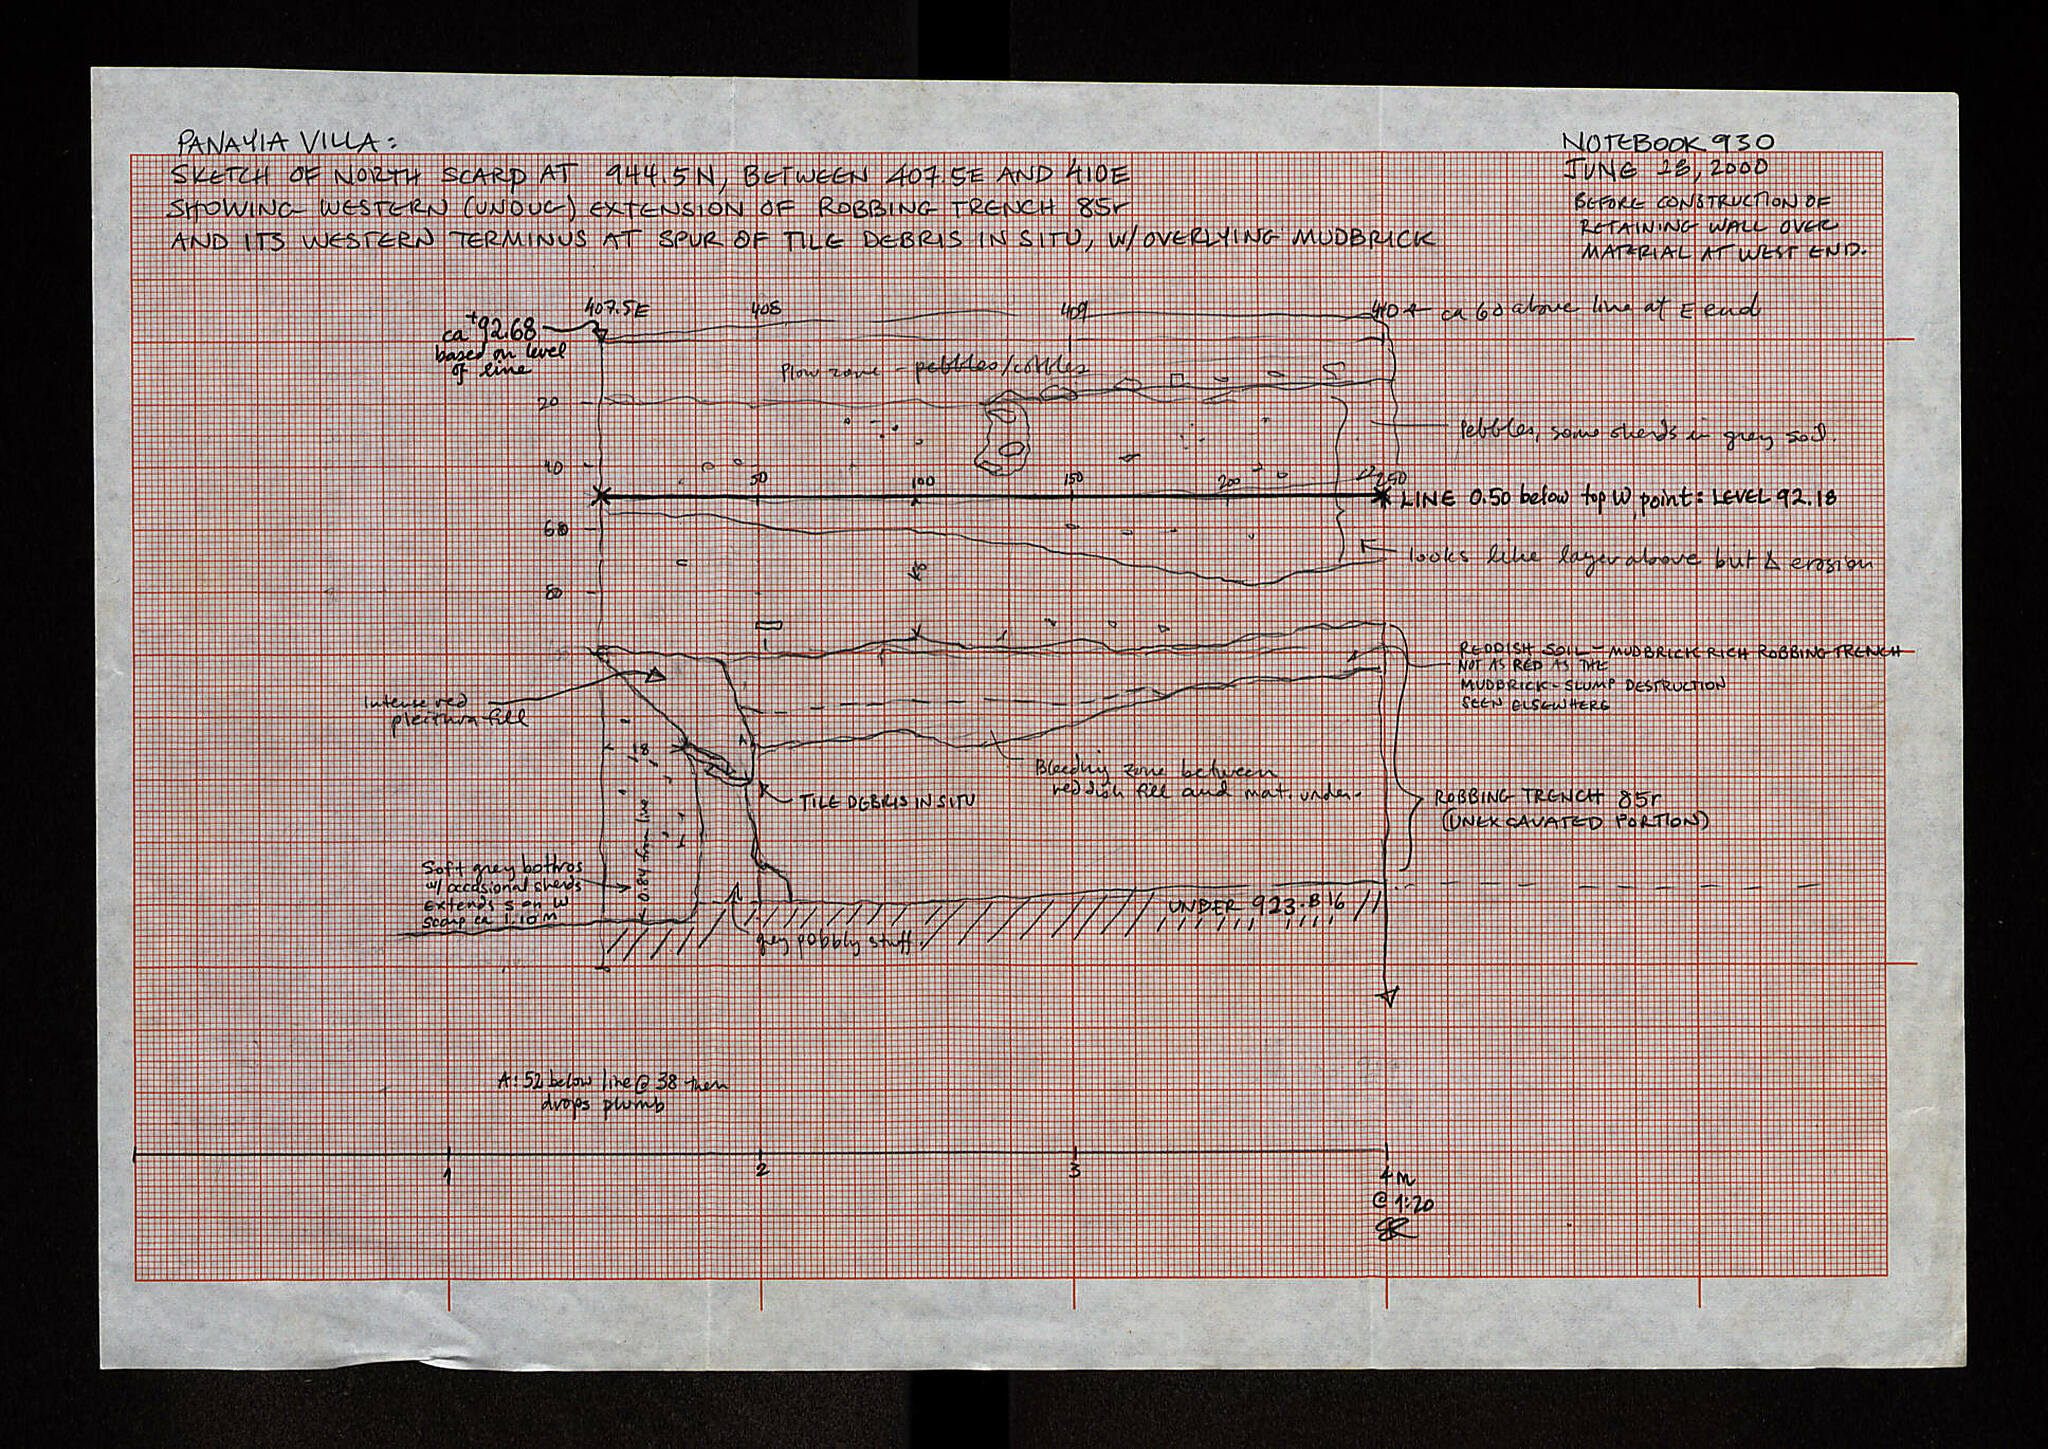 PANAYIA VILLA:
SKETCH OF NORTH SCARP AT 944.5N, BETWEEN 407.5E AND 410E
SHOWING WESTERN (UNDUG) EXTENSION OF ROBBING TRENCH 85r
AND ITS WESTERN TERMINUS AT SPUR OF TILE DEBRIS IN SITU, W/OVERLYING MUDBRICK
NOTEBOOK 930
JUNE 28, 2000
BEFORE CONSTRUCTION OF
RETAINING WALL OVER
MATERIAL AT WEST END.
407.5E 408 409 410 ← ca 60 above line at E end
ca +92.68
based on level
of line
Plow zone - pebbles/cobbles
20
Pebbles, some sherds in grey soil.
40
50 100 150 200 250
LINE 0.50 below top W point: LEVEL 92.18
60
looks like layer above but Δ erosion
80
100
REDDISH SOIL - MUDBRICK RICH ROBBING TRENCH
NOT AS RED AS THE
MUDBRICK-SLUMP DESTRUCTION
SEEN ELSEWHERE
Intense red
plesithra fill
18
Bleeding zone between
reddish fill and mat. under.
TILE DEBRIS IN SITU
ROBBING TRENCH 85r
(UNEXCAVATED PORTION)
0.84 from line
Soft grey bothros
w/ occasional sherds
Extends S on W
Scarp ca 1.10m
UNDER 923.B 16
grey pebbly stuff
A: 52 below line @ 38 then
drops plumb
1 2 3 4m
@ 1:20